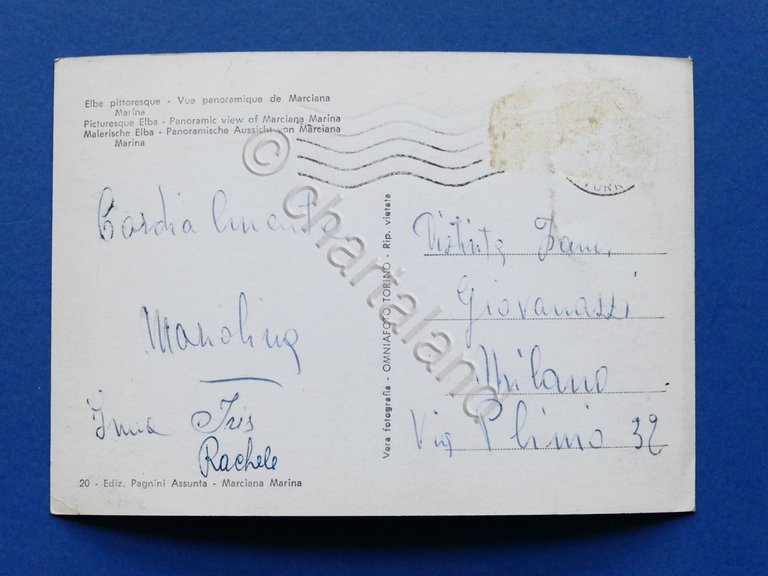 Elba pittoresque - Vue panoramique de Marciana
Marina
Picturesque Elba - Panoramic view of Marciana Marina
Malerische Elba - Panoramische Aussicht von Marciana
Marina
Cordialmente
Mariolina
Irma Iris
Rachele
20 - Ediz. Pagnini Assunta - Marciana Marina
Vera fotografia - OMNIAFOTO, TORINO - Rip. vietata
Distinta Fam.
Giovanazzi
Milano
Via Plinio 32
© chartaland